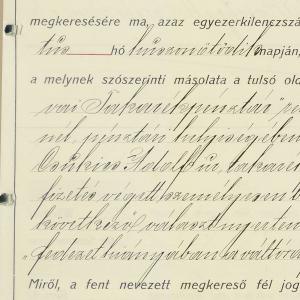 megkeresésére ma, azaz egyezerkilenczszá
tus hó huszonötödik napján,
a melynek szószerinti másolata a tulsó old
vári Takarékpénztár" ré
nek, pénztári helyiségében
Adolf takarék
fizetés végett személyesen b
következő választ nyertem
„fedezet hiányában a váltóra
Miről, a fent nevezett megkereső fél jog